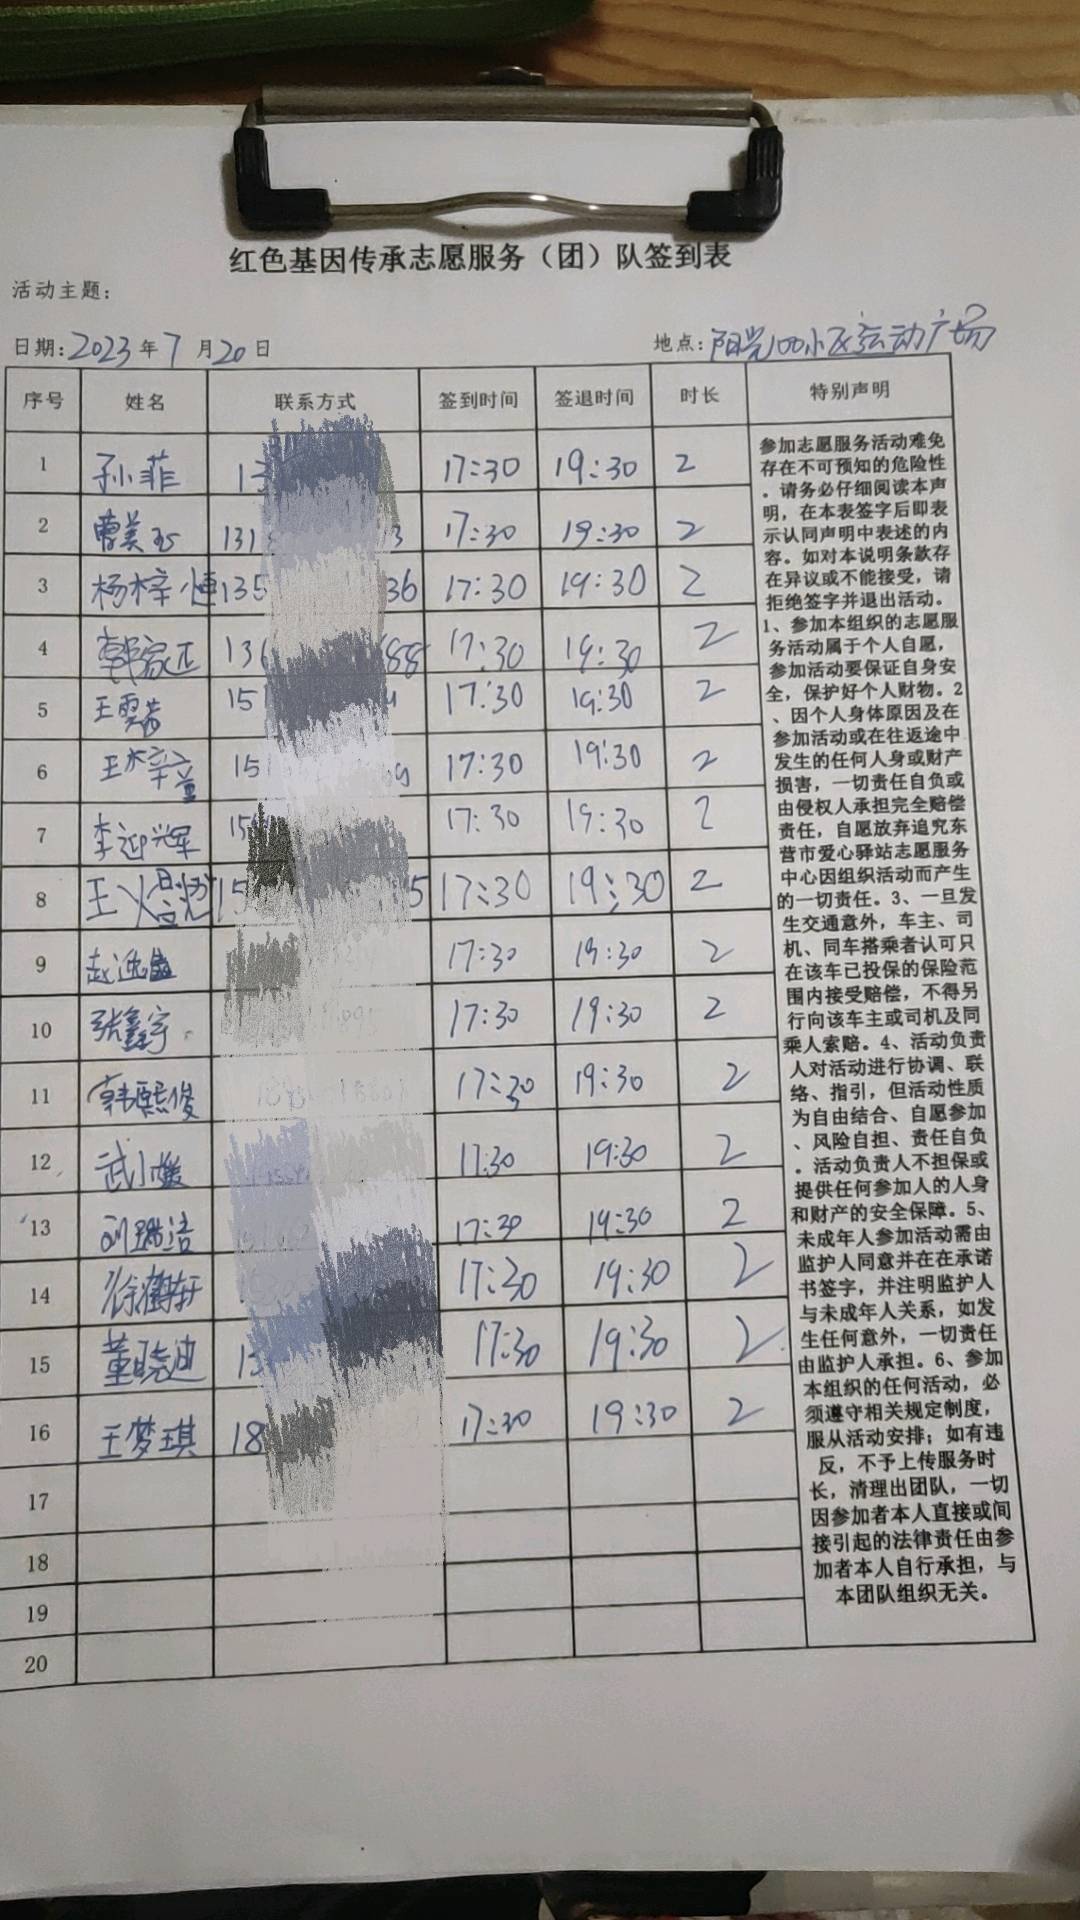 红色基因传承志愿服务（团）队签到表
活动主题：
日期：2023年7月20日 地点：阳光100小区运动广场
序号 姓名 联系方式 签到时间 签退时间 时长 特别声明
1 孙菲 13 17:30 19:30 2
2 曹美玉 131 3 17:30 19:30 2
3 杨梓 135 36 17:30 19:30 2
4 郭家正 136 88 17:30 19:30 2
5 王 151 17:30 19:30 2
6 王梓童 151 9 17:30 19:30 2
7 李迎冠军 15 17:30 19:30 2
8 王 15 5 17:30 19:30 2
9 赵逸 17:30 19:30 2
10 张鑫宇 17:30 19:30 2
11 韩熙俊 17:30 19:30 2
12 武小媛 17:30 19:30 2
13 刘瑞洁 17:30 19:30 2
14 徐 轩 17:30 19:30 2
15 董晓迪 13 17:30 19:30 2
16 王梦琪 18 17:30 19:30 2
17
18
19
20
参加志愿服务活动难免
存在不可预知的危险性
。请务必仔细阅读本声
明，在本表签字后即表
示认同声明中表述的内
容。如对本说明条款存
在异议或不能接受，请
拒绝签字并退出活动。
1、参加本组织的志愿服
务活动属于个人自愿，
参加活动要保证自身安
全，保护好个人财物。2
、因个人身体原因及在
参加活动或在往返途中
发生的任何人身或财产
损害，一切责任自负或
由侵权人承担完全赔偿
责任，自愿放弃追究东
营市爱心驿站志愿服务
中心因组织活动而产生
的一切责任。3、一旦发
生交通意外，车主、司
机、同车搭乘者认可只
在该车已投保的保险范
围内接受赔偿，不得另
行向该车主或司机及同
乘人索赔。4、活动负责
人对活动进行协调、联
络、指引，但活动性质
为自由结合、自愿参加
、风险自担、责任自负
。活动负责人不担保或
提供任何参加人的人身
和财产的安全保障。5、
未成年人参加活动需由
监护人同意并在在承诺
书签字，并注明监护人
与未成年人关系，如发
生任何意外，一切责任
由监护人承担。6、参加
本组织的任何活动，必
须遵守相关规定制度，
服从活动安排；如有违
反，不予上传服务时
长，清理出团队，一切
因参加者本人直接或间
接引起的法律责任由参
加者本人自行承担，与
本团队组织无关。